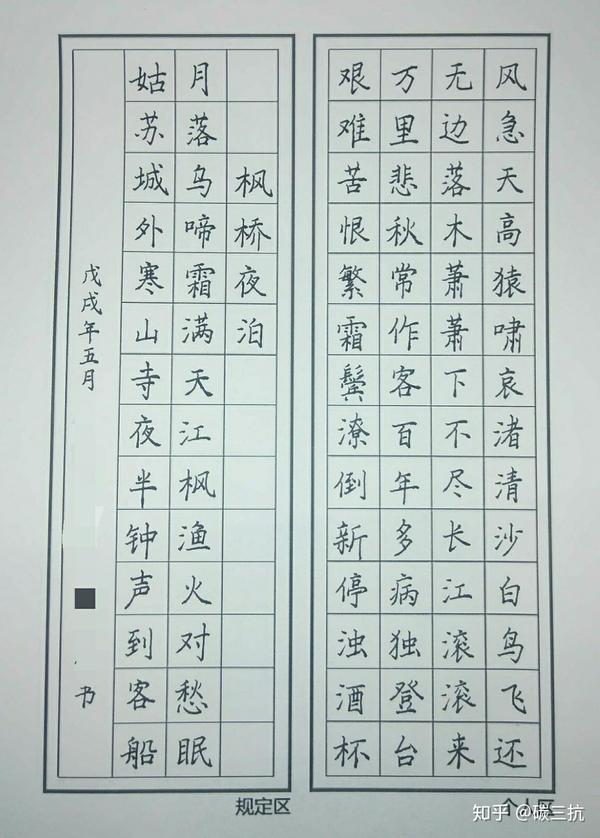 风急天高猿啸哀渚清沙白鸟飞还
无边落木萧萧下不尽长江滚滚来
万里悲秋常作客百年多病独登台
艰难苦恨繁霜鬓潦倒新停浊酒杯
枫桥夜泊
月落乌啼霜满天江枫渔火对愁眠
姑苏城外寒山寺夜半钟声到客船
戊戌年五月
书
规定区
个人区
知乎 @碳三抗